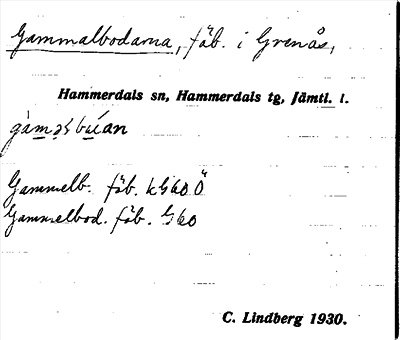 Gammalbodarna, fäb. i Grenås,
Hammerdals sn, Hammerdals tg, Jämtl. l.
Gammelb. fäb. kG60Ö
Gammelbod. fäb. G60
C. Lindberg 1930.